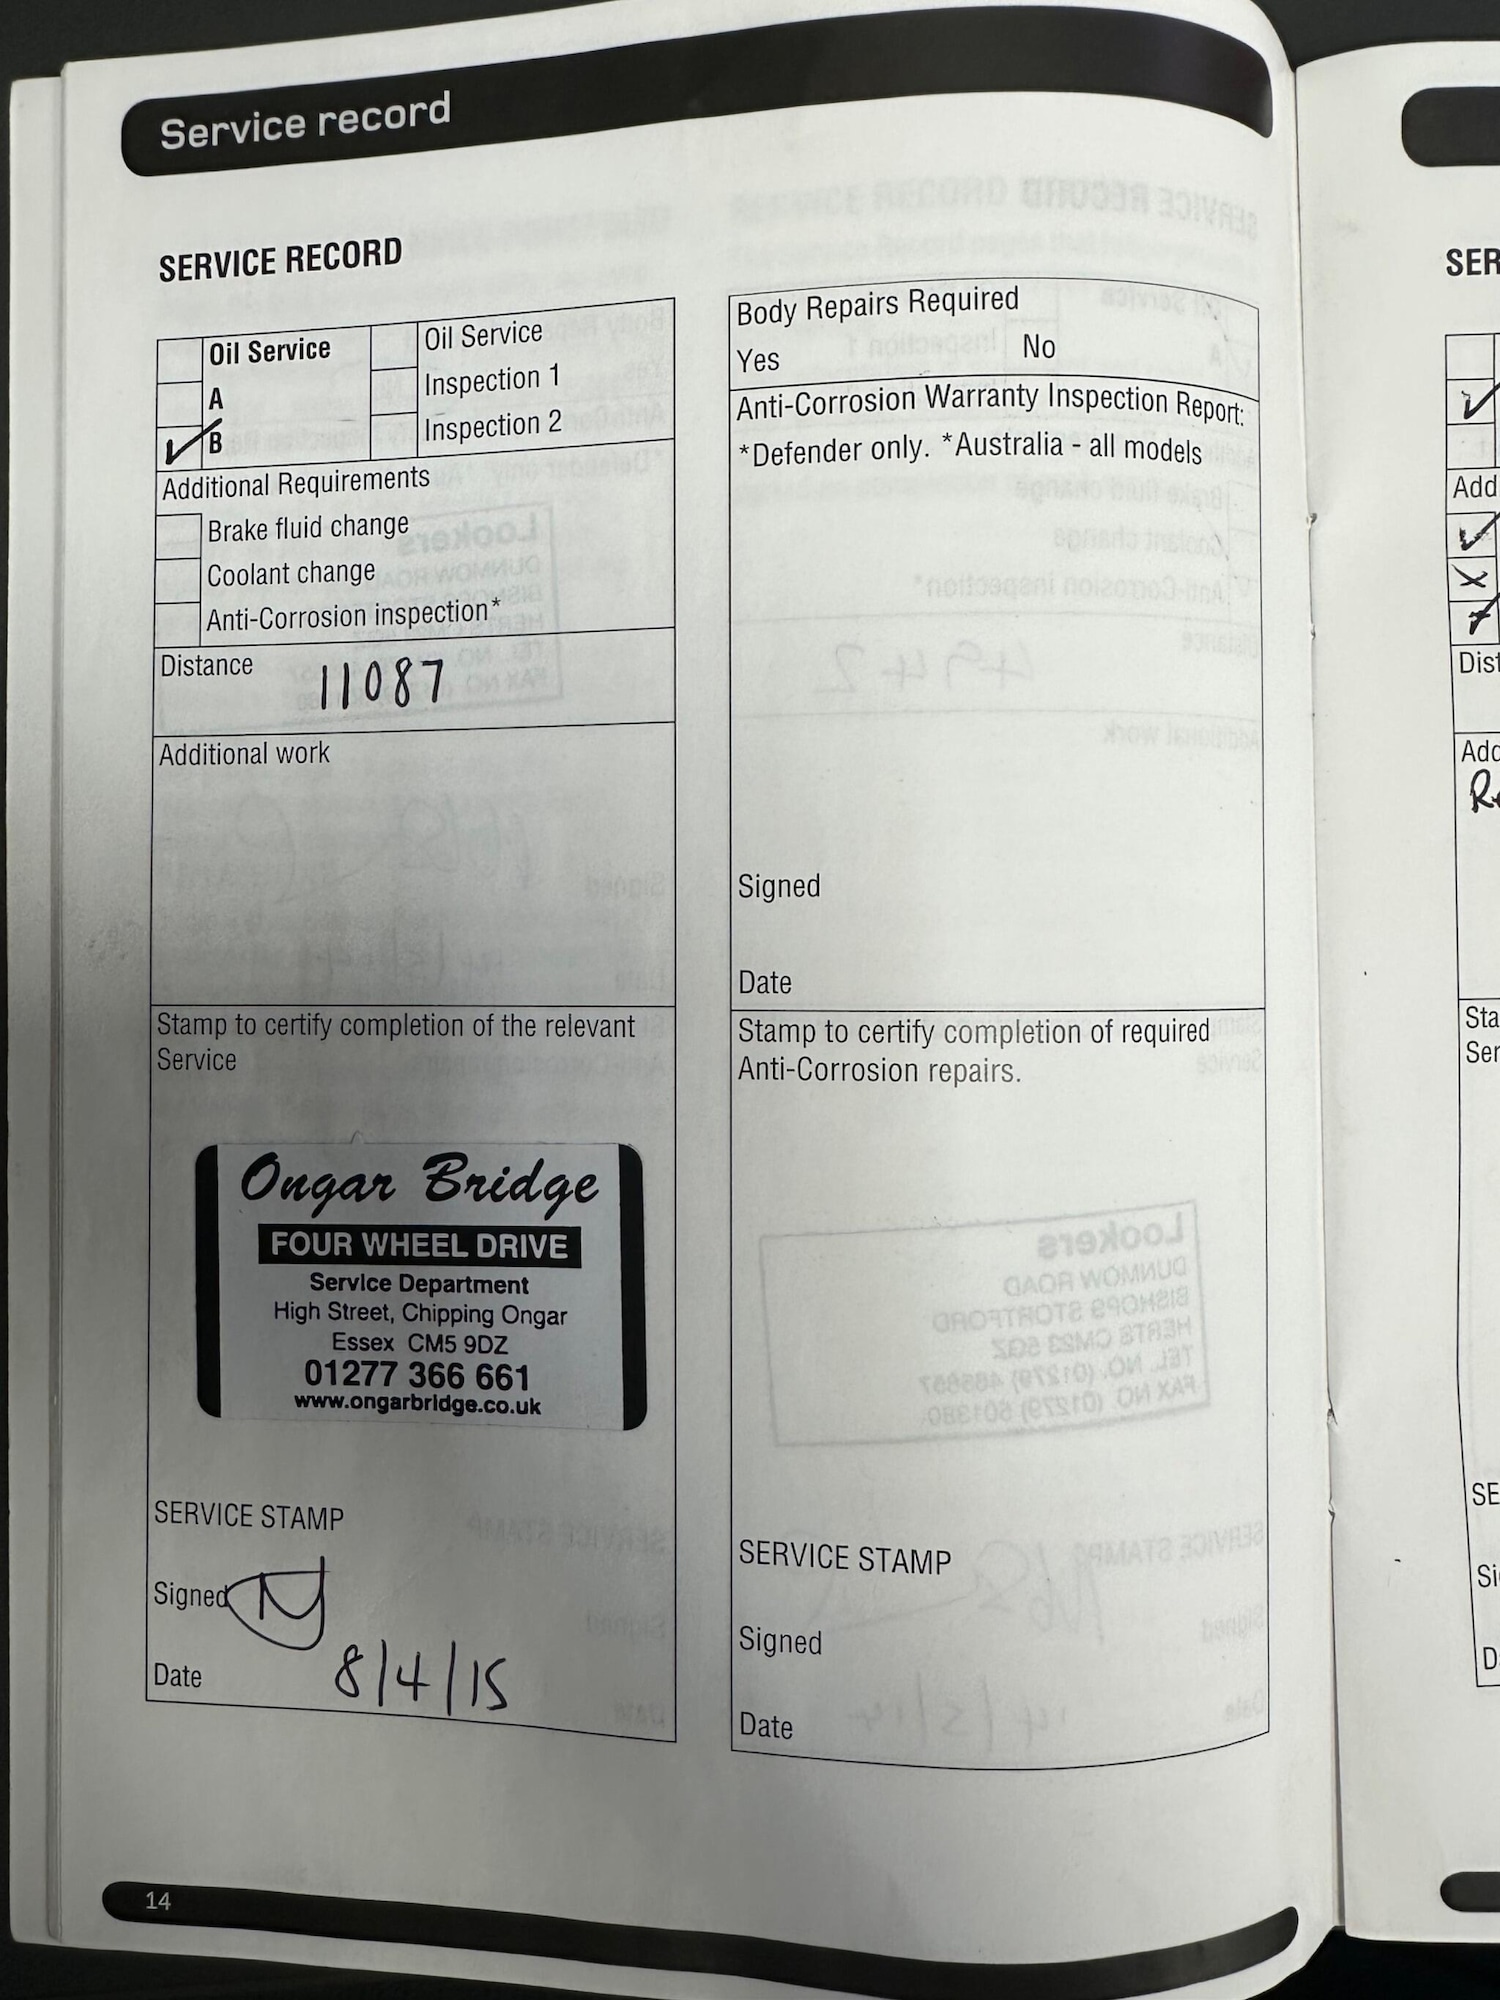 Service record
SERVICE RECORD
Oil Service
A
B
Oil Service
Inspection 1
Inspection 2
Additional Requirements
Brake fluid change
Coolant change
Anti-Corrosion inspection*
Distance 11087
Additional work
Stamp to certify completion of the relevant
Service
Ongar Bridge
FOUR WHEEL DRIVE
Service Department
High Street, Chipping Ongar
Essex CM5 9DZ
01277 366 661
www.ongarbridge.co.uk
SERVICE STAMP
Signed
Date 8/4/15
Body Repairs Required
Yes No
Anti-Corrosion Warranty Inspection Report:
*Defender only. *Australia - all models
Signed
Date
Stamp to certify completion of required
Anti-Corrosion repairs.
SERVICE STAMP
Signed
Date
14